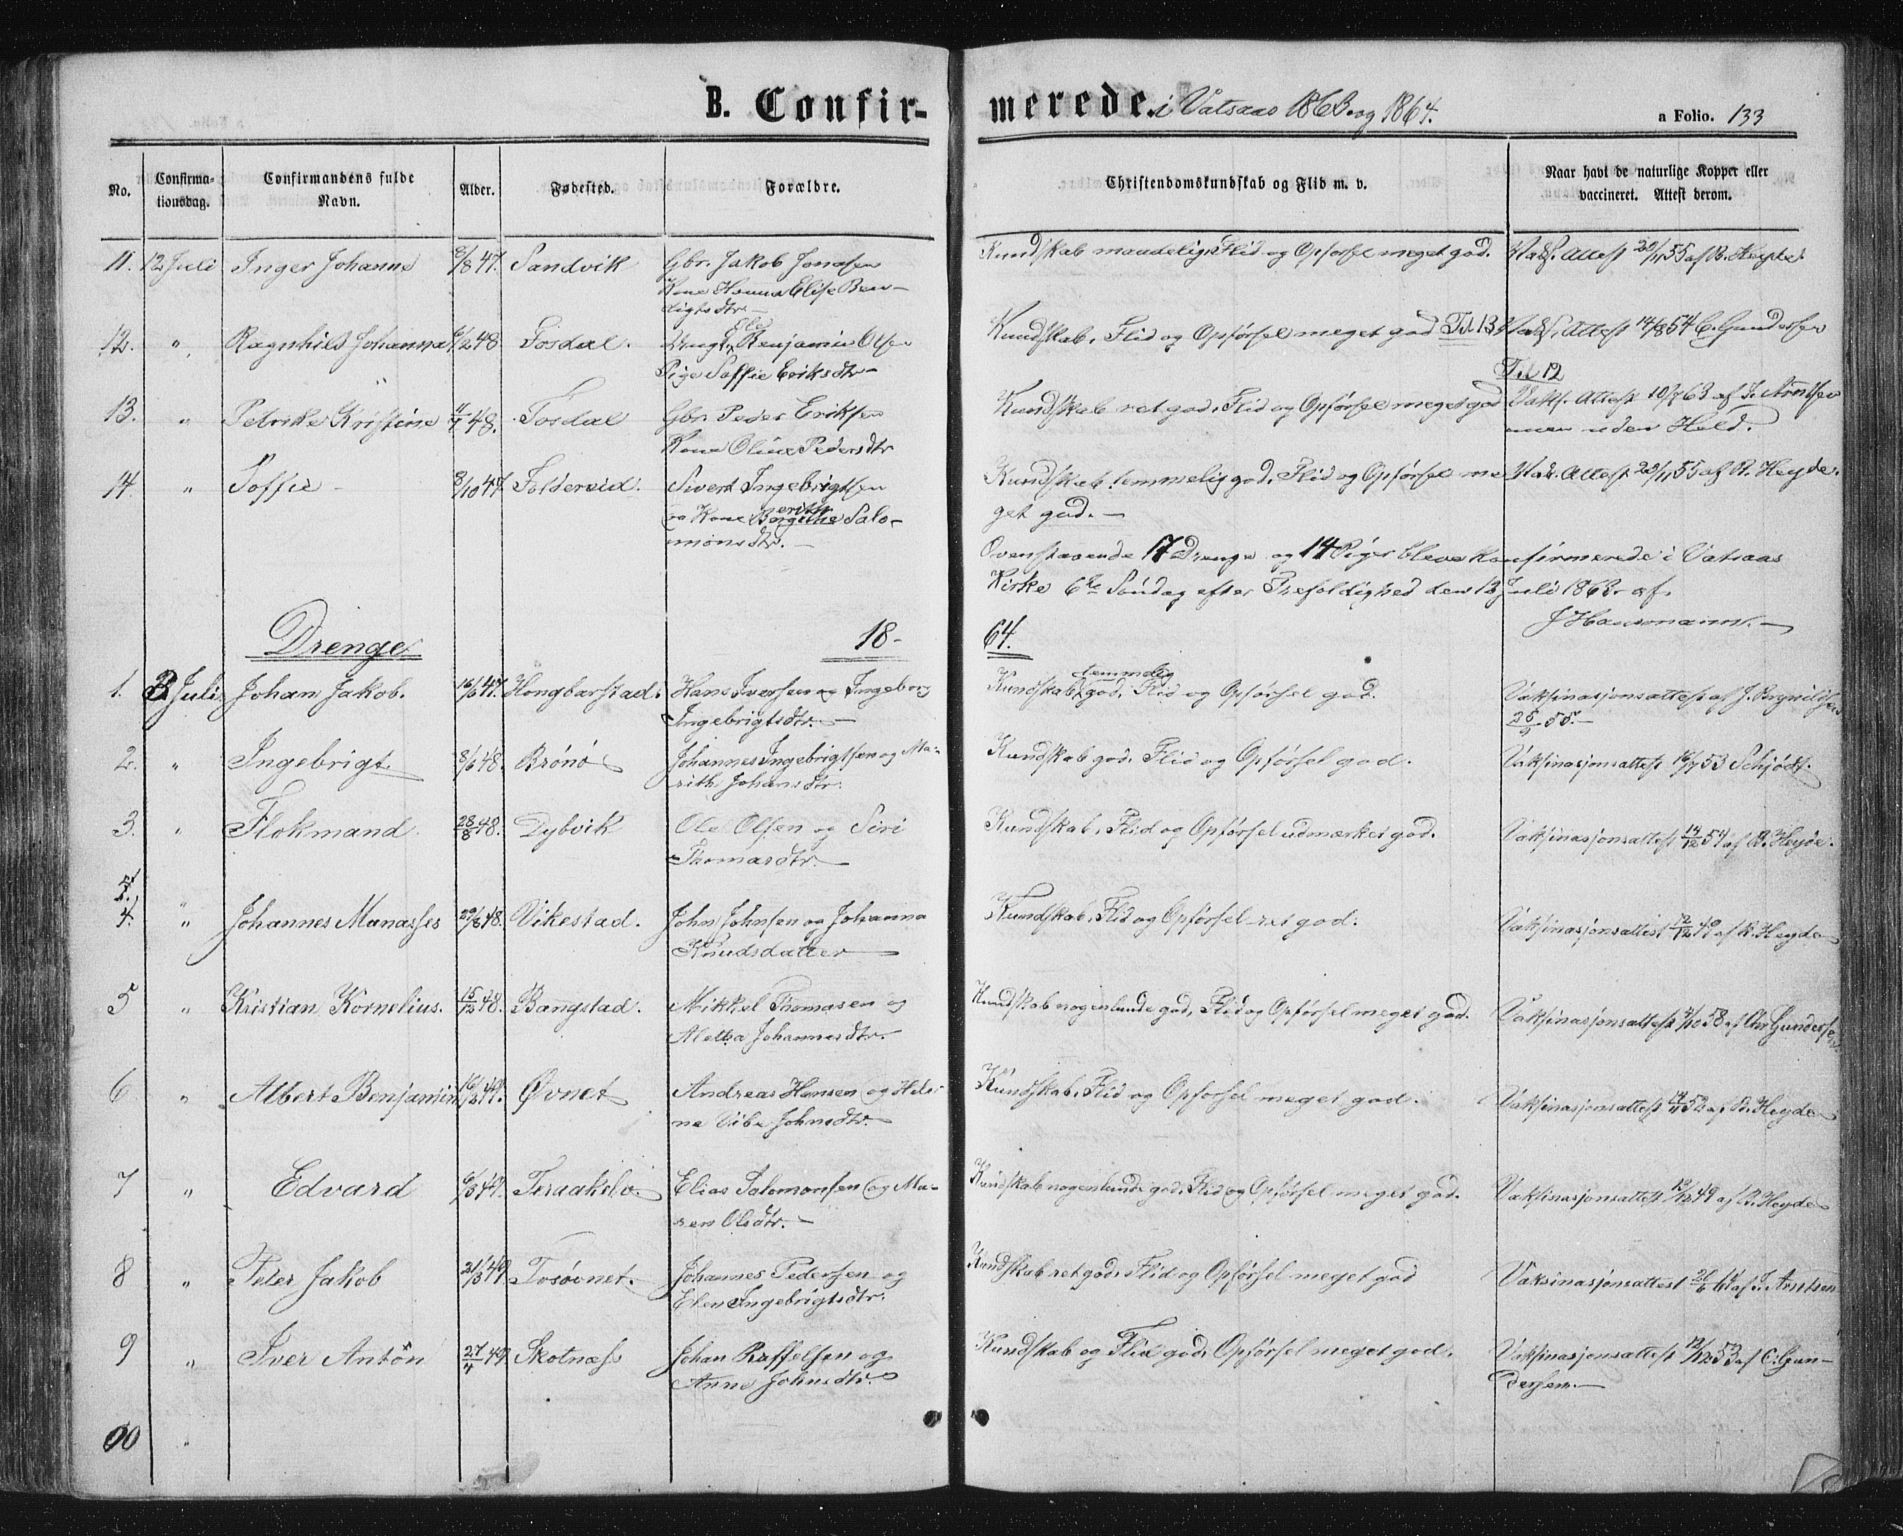 B. Confirmerede i Vatsaas 1863 og 1864. a Folio. 133
No. Confirmationsdag. Confirmandens fulde Navn. Alder. Fødested. Forældre. Christendomskundskab og Flid m. v. Naar havt de naturlige Kopper eller vaccineret. Attest derom.
11. 12 Juli Inger Johanne 8/8 47. Sandvik Gbr. Jakob Jonasen Kundskab maadelig, Flid og Opførsel meget god. Vaks. Attest 20/11 55 af R. Heyde.
Kone Hanna Elise Ben-
digtsdtr.
12. " Ragnhild Johanna 6/2 48. Tosdal. Ungk. Ole Benjamin Olsen Kundskab, Flid og Opførsel meget god Til 13 Vaks. Attest 14/8 54 C. Gundersen
Pige Soffie Eriksdtr Til 12
13. " Petrike Kristine 4/4 48. Tosdal Gbr. Peder Eriksen Kundskab ret god, Flid og Opførsel meget god Vaks. Attest 10/7 63 af J. Arntsen
Kone Oline Pedersdtr men uden Held.
14. " Soffie 8/10 47 Foldereid. Sivert Ingebrigtsen Kundskab temmelig god, Flid og Opførsel me- Vak. Attest 20/11 55 af R. Heyde.
og Kone Bergithe Salo- get god.
monsdtr.
Ovenstaaende 17 Drenge og 14 Piger bleve konfirmerede i Vatsaas
Kirke 6te Søndag efter Trefoldighed den 12 Juli 1863 af
J Hansmann.
Drenge 18- 64.
1. 3. Juli Johan Jakob. 16/6 47. Hongbarstad. Hans Iversen og Ingeborg Kundskab temmelig god, Flid og Opførsel god. Vaksinasjonsattest af J. Brynildsen
Ingebrigtsdtr. 25/9 55.
2. " Ingebrigt 8/6 48. Brønø Johannes Ingebrigtsen og Ma- Kundskab god, Flid og Opførsel god. Vaksinasjonsattest 16/7 53 Schjødt.
rith Johansdtr.
3. " Flokmand 28/8 48. Dybvik Ole Olsen og Siri Kundskab, Flid og Opførsel udmerket god. Vaksinasjonsattest 14/12 54 af R. Heyde.
Thomasdtr.
4. " Johannes Manasses 29/8 48. Vikestad. John Johnsen og Johanna Kundskab, Flid og Opførsel ret god. Vaksinasjonsattest 12/12 49 af R. Heyde
Knudsdatter
5 " Kristian Kornelius. 15/12 48. Bangstad. Mikkel Thomasen og Kundskab nogenlunde god, Flid og Opførsel meget god. Vaksinasjonsattest 2/10 58 af Chr Gundersen
Metha Johannesdtr.
6 " Albert Benjamin 16/2 49. Øvnet Andreas Hansen og Hele- Kundskab, Flid og Opførsel meget god. Vaksinasjonsattest 14/11 52 af R. Heyde
na Vibe Johnsdtr.
7 " Edvard 6/3 49. Teraakelv. Elias Salomonsen og Ma- Kundskab nogenlunde god, Flid og Opførsel meget god. Vaksinasjonsattest 12/12 49 af R. Heyde
ren Olsdtr.
8 " Peter Jakob 21/3 49 Tosøvnet. Johannes Pedersen og Kundskab ret god, Flid og Opførsel meget god Vaksinasjonsattest 21/6 61 af J. Arntsen
Elen Ingebrigtsdtr.
9 " Iver Antôn 27/4 49 Skotnæss Johan Raffelsen og Kundskab og Flid god, Opførsel meget god. Vaksinasjonsattest 12/12 53 af C. Gun-
Anne Johnsdtr. dersen.